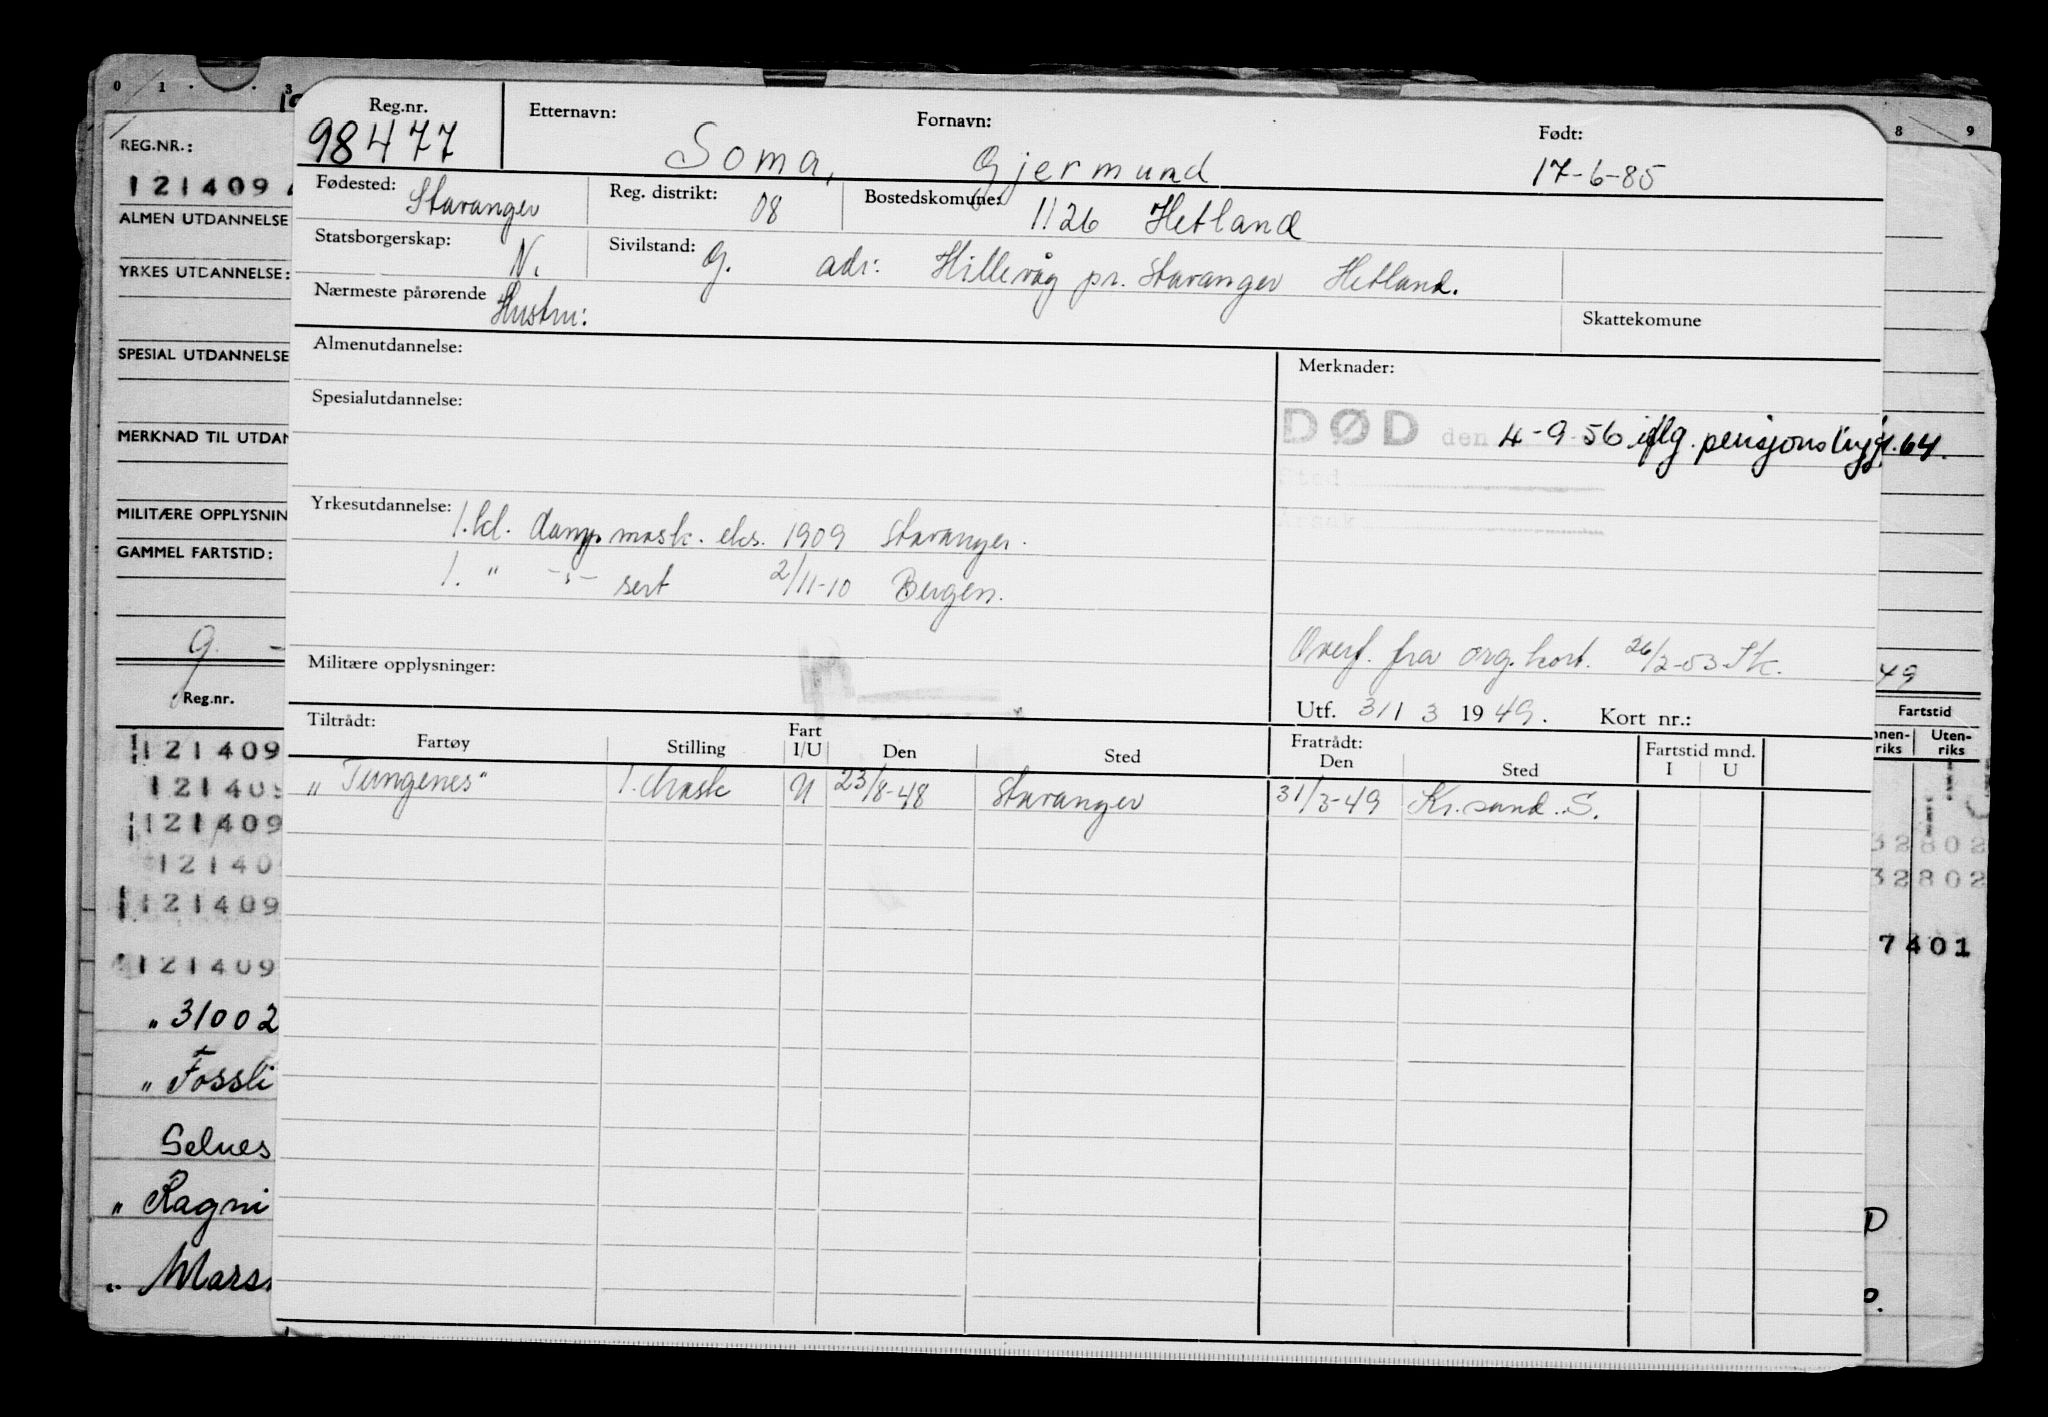 0 1 3
REG.NR.:
121409
ALMEN UTDANNELSE
YRKES UTDANNELSE:
SPESIAL UTDANNELSE
MERKNAD TIL UTDAN
MILITÆRE OPPLYSNIN
GAMMEL FARTSTID:
g. -
Reg.nr.
121409
121409
121409
12140
121409
121409
" 31002
" Fossli
Selnes
" Ragni
" Mars
Reg.nr. Etternavn: Fornavn: Født:
98477 Soma, Gjermund 17-6-85
Fødested: Stavanger Reg. distrikt: 08 Bostedskomune: 1126 Hetland
Statsborgerskap: N. Sivilstand: G. adr: Hillevåg pr. Stavanger Hetland.
Nærmeste pårørende Hustru: Skattekomune
Almenutdannelse: Merknader:
Spesialutdannelse:
DØD den 4-9-56 iflg. pensjonstrygd. 64.
Sted
Årsak
Yrkesutdannelse: 1. kl. damp mask. eks. 1909 Stavanger.
1. " -"- sert 2/11-10 Bergen.
Overf. fra org. kort. 26/2-53 Sk.
Militære opplysninger:
Utf. 31/ 3 1949. Kort nr.:
Tiltrådt: Fratrådt:
Fartøy Stilling Fart I/U Den Sted Den Sted Fartstid mnd. I U
"Tungenes" 1. Mask U 23/8-48 Stavanger 31/3-49 Kr.sand.S.
8 9
49
Fartstid
nnen-riks Uten-riks
32802
32802
7401
D
o.